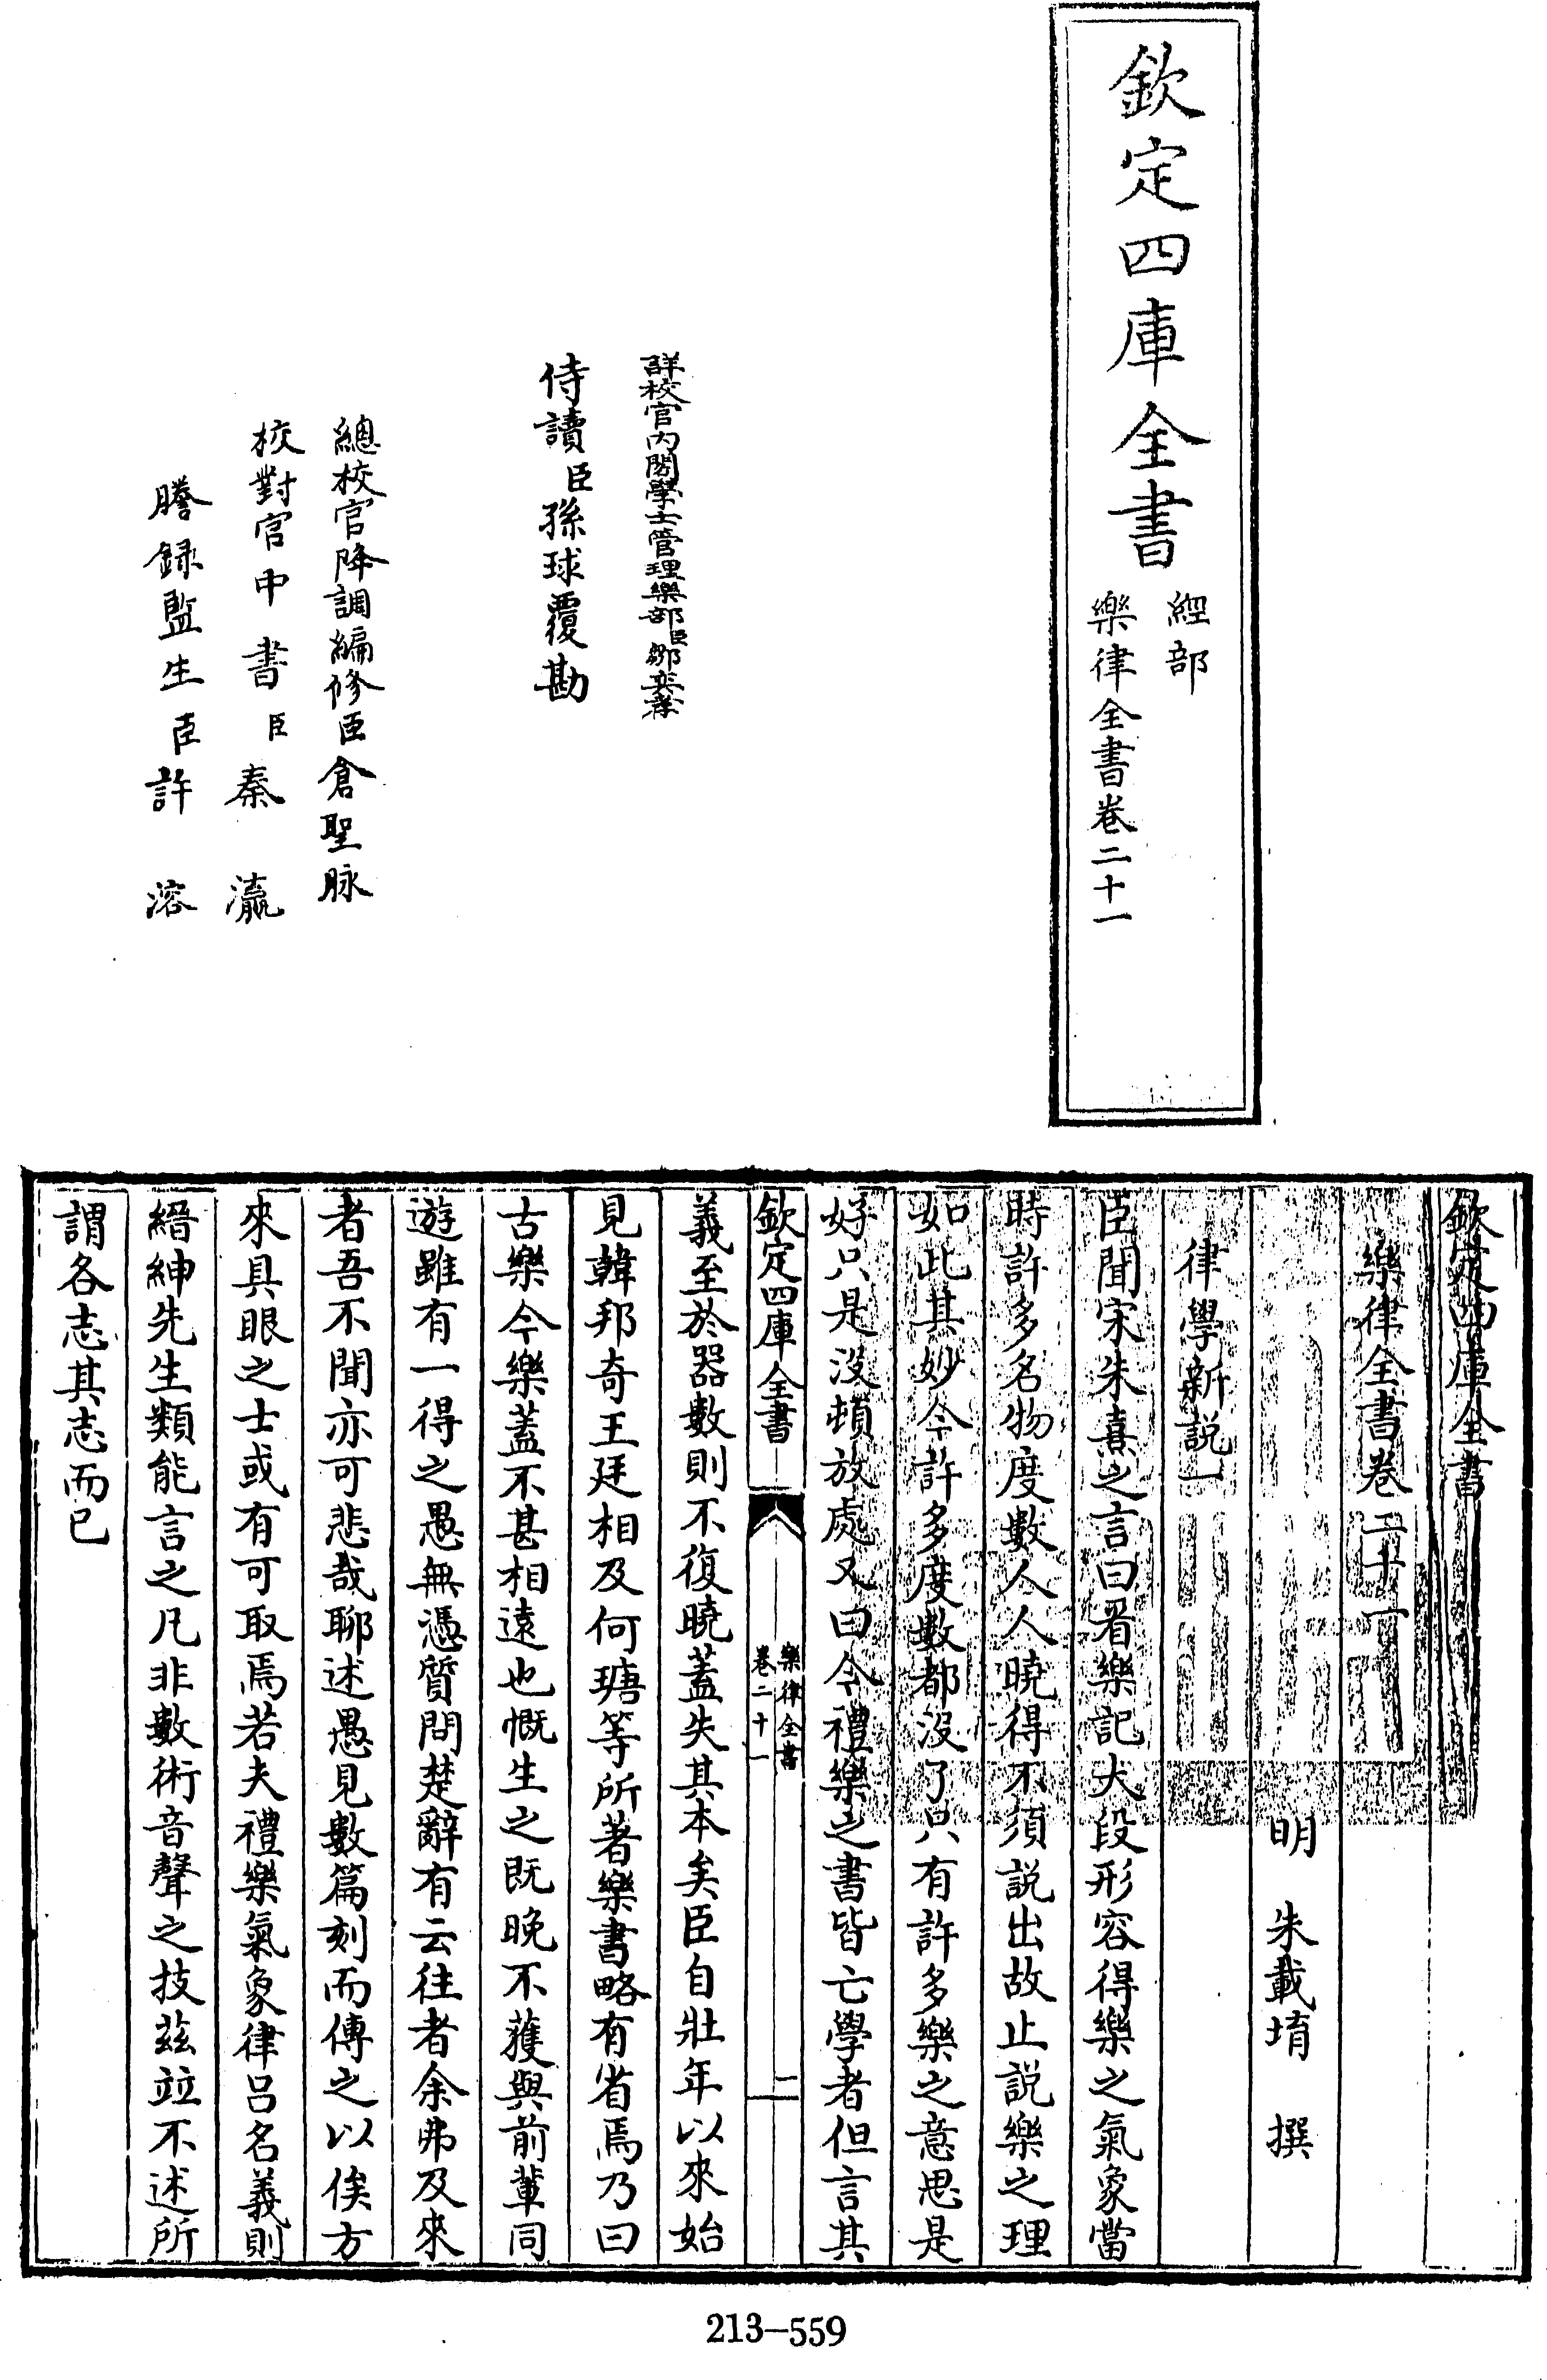 欽定四庫全書
經部
樂律全書卷二十一
詳校官内閣學士管理樂部臣鄒奕孝
侍讀臣孫球覆勘
總校官降調編修臣倉聖脉
校對官中書臣秦瀛
謄録監生臣許溶
欽定四庫全書
樂律全書卷二十一
明 朱載堉 撰
律學新說一
臣聞宋朱熹之言曰看樂記大段形容得樂之氣象當
時許多名物度數人人曉得不須説出故止説樂之理
如此其妙今許多度數都沒了只有許多樂之意思是
好只是沒頓放處又曰今禮樂之書皆亡學者但言其
欽定四庫全書
樂律全書
卷二十一
一
義至於器數則不復曉蓋失其本矣臣自壯年以來始
見韓邦奇王廷相及何瑭等所著樂書略有省焉乃曰
古樂今樂蓋不甚相遠也慨生之既晚不獲與前輩同
遊雖有一得之愚無憑質問楚辭有云往者余弗及來
者吾不聞亦可悲哉聊述愚見數篇刻而傳之以俟方
來具眼之士或有可取焉若夫禮樂氣象律呂名義則
縉紳先生類能言之凡非數術音聲之技茲竝不述所
謂各志其志而已
213-559